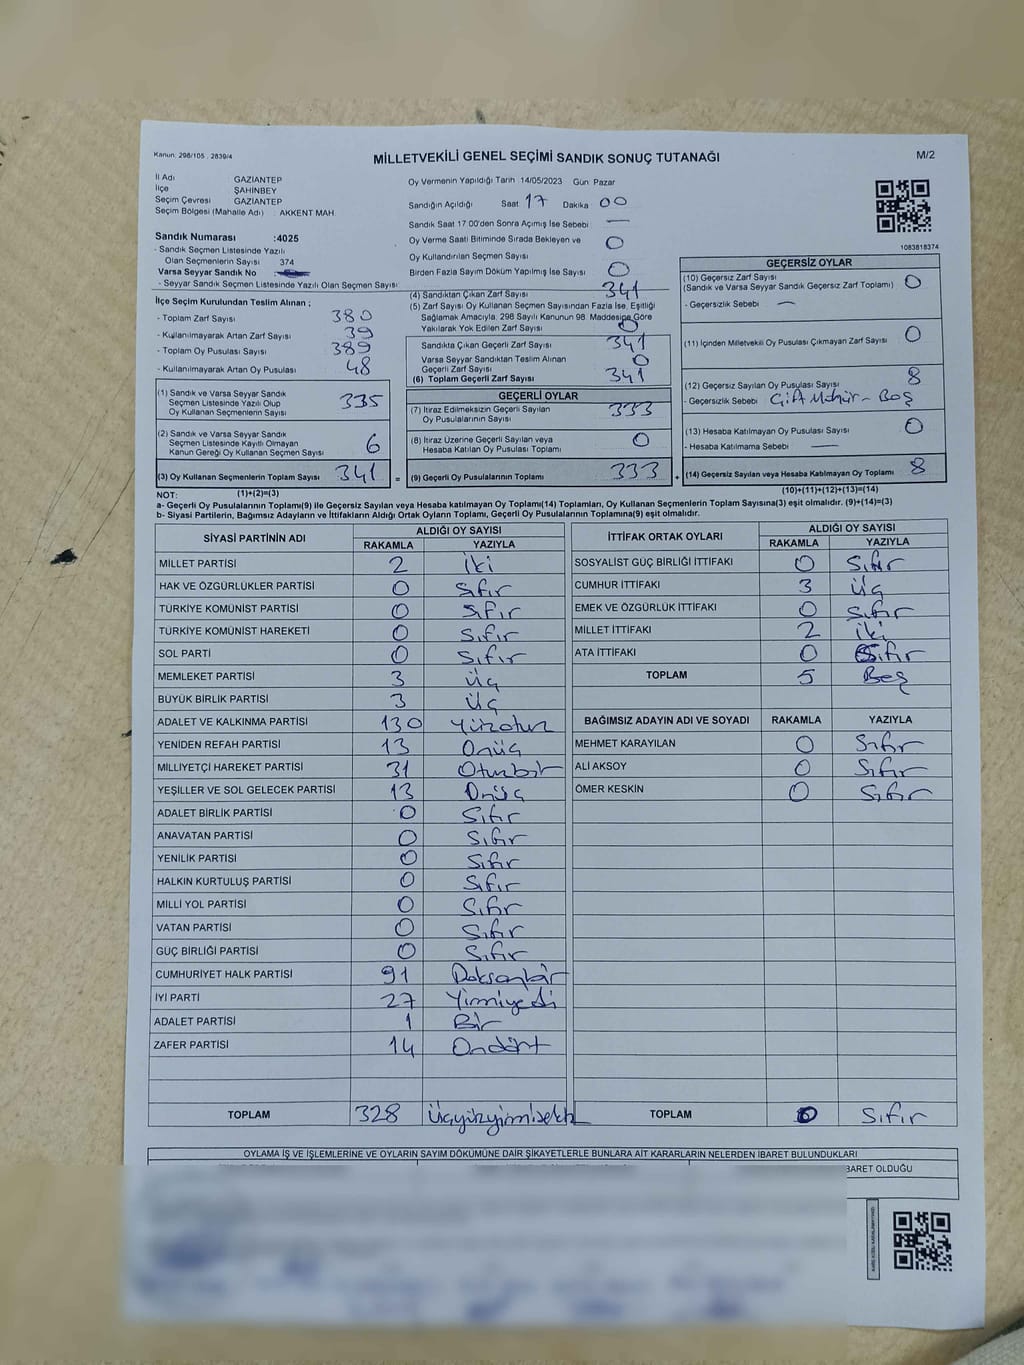 Kanun: 298/105 , 2839/4
MİLLETVEKİLİ GENEL SEÇİMİ SANDIK SONUÇ TUTANAĞI
M/2
İl Adı GAZIANTEP
İlçe ŞAHİNBEY
Seçim Çevresi GAZIANTEP
Seçim Bölgesi (Mahalle Adı) : AKKENT MAH.
Sandık Numarası :4025
- Sandık Seçmen Listesinde Yazılı
Olan Seçmenlerin Sayısı 374
Varsa Seyyar Sandık No
- Seyyar Sandık Seçmen Listesinde Yazılı Olan Seçmen Sayısı
Oy Vermenin Yapıldığı Tarih 14/05/2023 Gün Pazar
Sandığın Açıldığı Saat 17 Dakika 00
Sandık Saat 17 00'den Sonra Açımış İse Sebebi —
Oy Verme Saati Bitiminde Sırada Bekleyen ve
Oy Kullandırılan Seçmen Sayısı 0
Birden Fazla Sayım Döküm Yapılmış İse Sayısı 0
1083818374
İlçe Seçim Kurulundan Teslim Alınan ;
- Toplam Zarf Sayısı 380
- Kullanılmayarak Artan Zarf Sayısı 39
- Toplam Oy Pusulası Sayısı 389
- Kullanılmayarak Artan Oy Pusulası 48
(1) Sandık ve Varsa Seyyar Sandık
Seçmen Listesinde Yazılı Olup
Oy Kullanan Seçmenlerin Sayısı 335
(2) Sandık ve Varsa Seyyar Sandık
Seçmen Listesinde Kayıtlı Olmayan
Kanun Gereği Oy Kullanan Seçmen Sayısı 6
(3) Oy Kullanan Seçmenlerin Toplam Sayısı 341 =
(4) Sandıktan Çıkan Zarf Sayısı 341
(5) Zarf Sayısı Oy Kullanan Seçmen Sayısından Fazla İse, Eşitliği
Sağlamak Amacıyla, 298 Sayılı Kanunun 98. Maddesine Göre
Yakılarak Yok Edilen Zarf Sayısı 0
Sandıkta Çıkan Geçerli Zarf Sayısı 341
Varsa Seyyar Sandıktan Teslim Alınan
Geçerli Zarf Sayısı 0
(6) Toplam Geçerli Zarf Sayısı 341
GEÇERLİ OYLAR
(7) İtiraz Edilmeksizin Geçerli Sayılan
Oy Pusulalarının Toplamı 333
(8) İtiraz Üzerine Geçerli Sayılan veya
Hesaba Katılan Oy Pusulası Toplamı 0
(9) Geçerli Oy Pusulalarının Toplamı 333 +
GEÇERSİZ OYLAR
(10) Geçersiz Zarf Sayısı
(Sandık ve Varsa Seyyar Sandık Geçersiz Zarf Toplamı) 0
- Geçersizlik Sebebi —
(11) İçinden Milletvekili Oy Pusulası Çıkmayan Zarf Sayısı 0
(12) Geçersiz Sayılan Oy Pusulası Sayısı 8
- Geçersizlik Sebebi Çift Mühür - Boş
(13) Hesaba Katılmayan Oy Pusulası Sayısı 0
- Hesaba Katılmama Sebebi —
(14) Geçersiz Sayılan veya Hesaba Katılmayan Oy Toplamı 8
NOT: (1)+(2)=(3) (10)+(11)+(12)+(13)=(14)
a- Geçerli Oy Pusulalarının Toplamı(9) ile Geçersiz Sayılan veya Hesaba katılmayan Oy Toplamı(14) Toplamları, Oy Kullanan Seçmenlerin Toplam Sayısına(3) eşit olmalıdır. (9)+(14)=(3)
b- Siyasi Partilerin, Bağımsız Adayların ve İttifakların Aldığı Ortak Oyların Toplamı, Geçerli Oy Pusulalarının Toplamına(9) eşit olmalıdır.
SİYASİ PARTİNİN ADI ALDIĞI OY SAYISI
RAKAMLA YAZIYLA
MİLLET PARTİSİ 2 iki
HAK VE ÖZGÜRLÜKLER PARTİSİ 0 Sıfır
TÜRKİYE KOMÜNİST PARTİSİ 0 Sıfır
TÜRKİYE KOMÜNİST HAREKETİ 0 Sıfır
SOL PARTİ 0 Sıfır
MEMLEKET PARTİSİ 3 üç
BÜYÜK BİRLİK PARTİSİ 3 üç
ADALET VE KALKINMA PARTİSİ 130 Yüzotuz
YENİDEN REFAH PARTİSİ 13 Onüç
MİLLİYETÇİ HAREKET PARTİSİ 31 Otuzbir
YEŞİLLER VE SOL GELECEK PARTİSİ 13 Onüç
ADALET BİRLİK PARTİSİ 0 Sıfır
ANAVATAN PARTİSİ 0 Sıfır
YENİLİK PARTİSİ 0 Sıfır
HALKIN KURTULUŞ PARTİSİ 0 Sıfır
MİLLİ YOL PARTİSİ 0 Sıfır
VATAN PARTİSİ 0 Sıfır
GÜÇ BİRLİĞİ PARTİSİ 0 Sıfır
CUMHURİYET HALK PARTİSİ 91 Doksanbir
İYİ PARTİ 27 Yirmiyedi
ADALET PARTİSİ 1 Bir
ZAFER PARTİSİ 14 Ondört
TOPLAM 328 üçyüzyirmisekiz
İTTİFAK ORTAK OYLARI ALDIĞI OY SAYISI
RAKAMLA YAZIYLA
SOSYALİST GÜÇ BİRLİĞİ İTTİFAKI 0 Sıfır
CUMHUR İTTİFAKI 3 üç
EMEK VE ÖZGÜRLÜK İTTİFAKI 0 Sıfır
MİLLET İTTİFAKI 2 iki
ATA İTTİFAKI 0 Sıfır
TOPLAM 5 Beş
BAĞIMSIZ ADAYIN ADI VE SOYADI RAKAMLA YAZIYLA
MEHMET KARAYILAN 0 Sıfır
ALİ AKSOY 0 Sıfır
ÖMER KESKİN 0 Sıfır
TOPLAM 0 Sıfır
OYLAMA İŞ VE İŞLEMLERİNE VE OYLARIN SAYIM DÖKÜMÜNE DAİR ŞİKAYETLERLE BUNLARA AİT KARARLARIN NELERDEN İBARET BULUNDUKLARI
BARET OLDUĞU